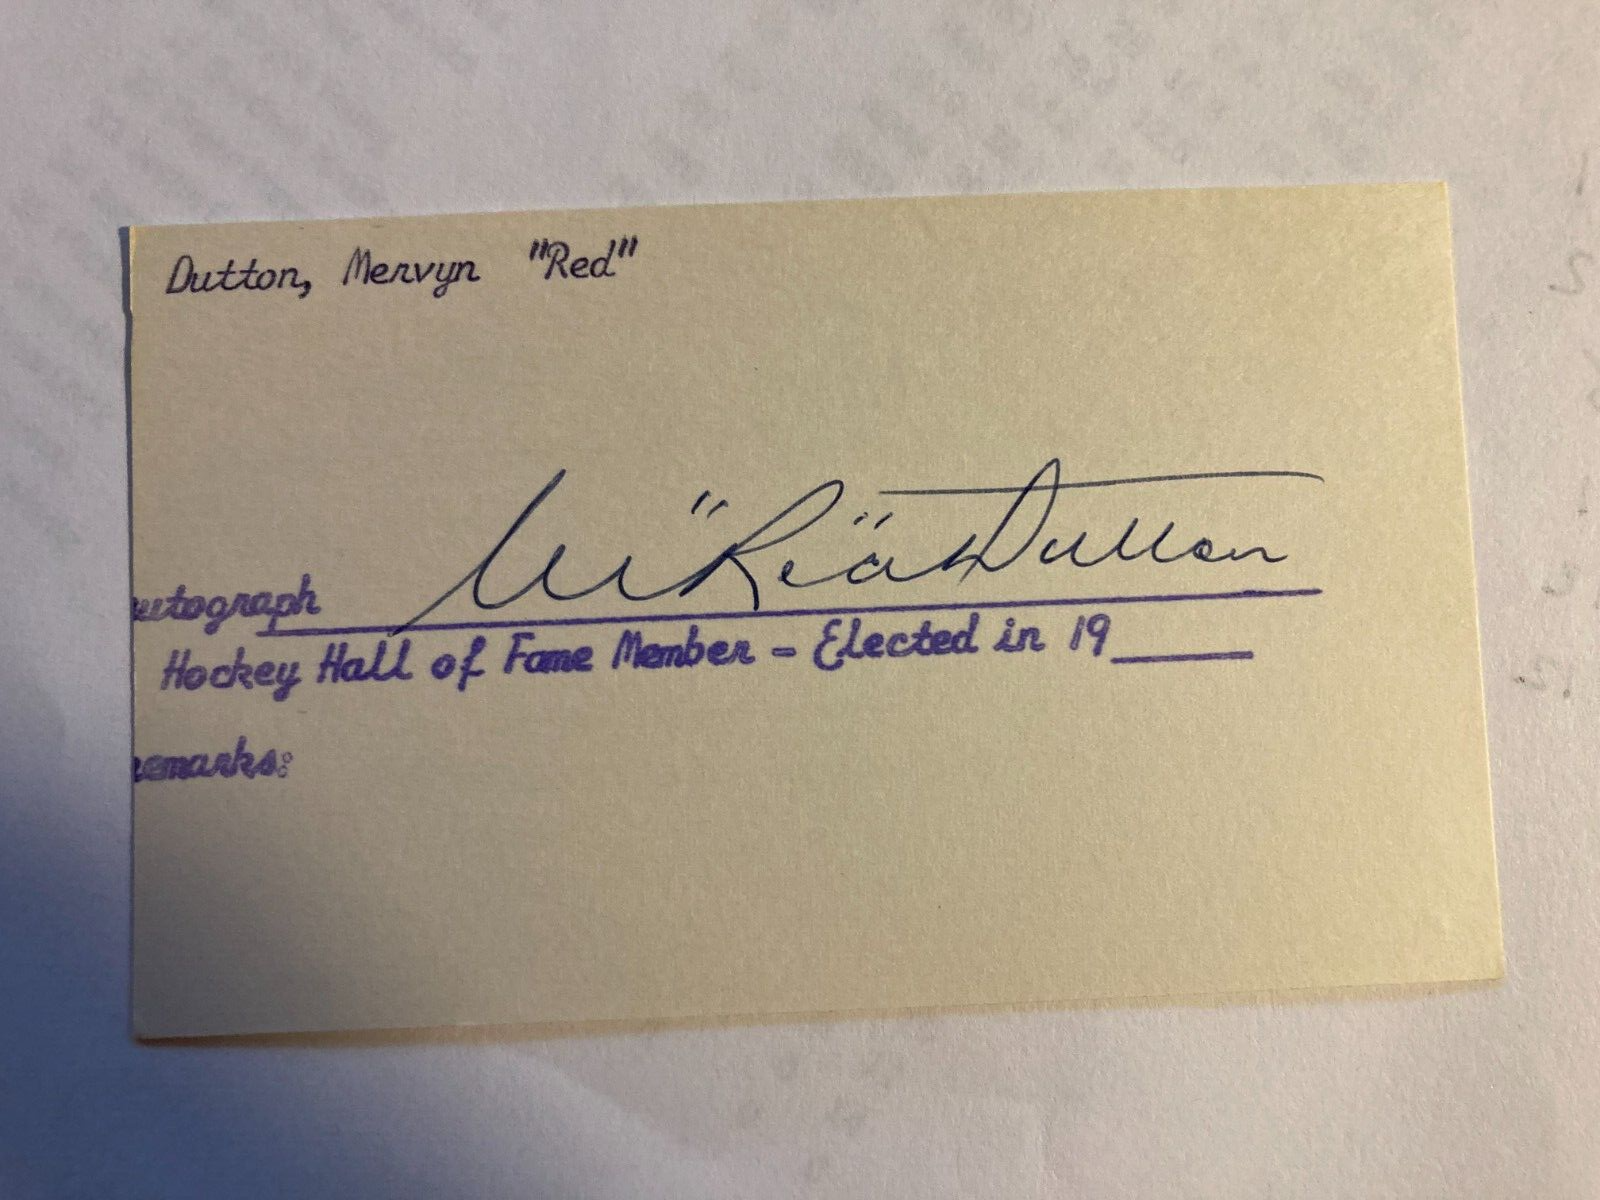 Dutton, Mervyn "Red"
M "Red" Dutton
utograph
Hockey Hall of Fame Member - Elected in 19____
emarks: